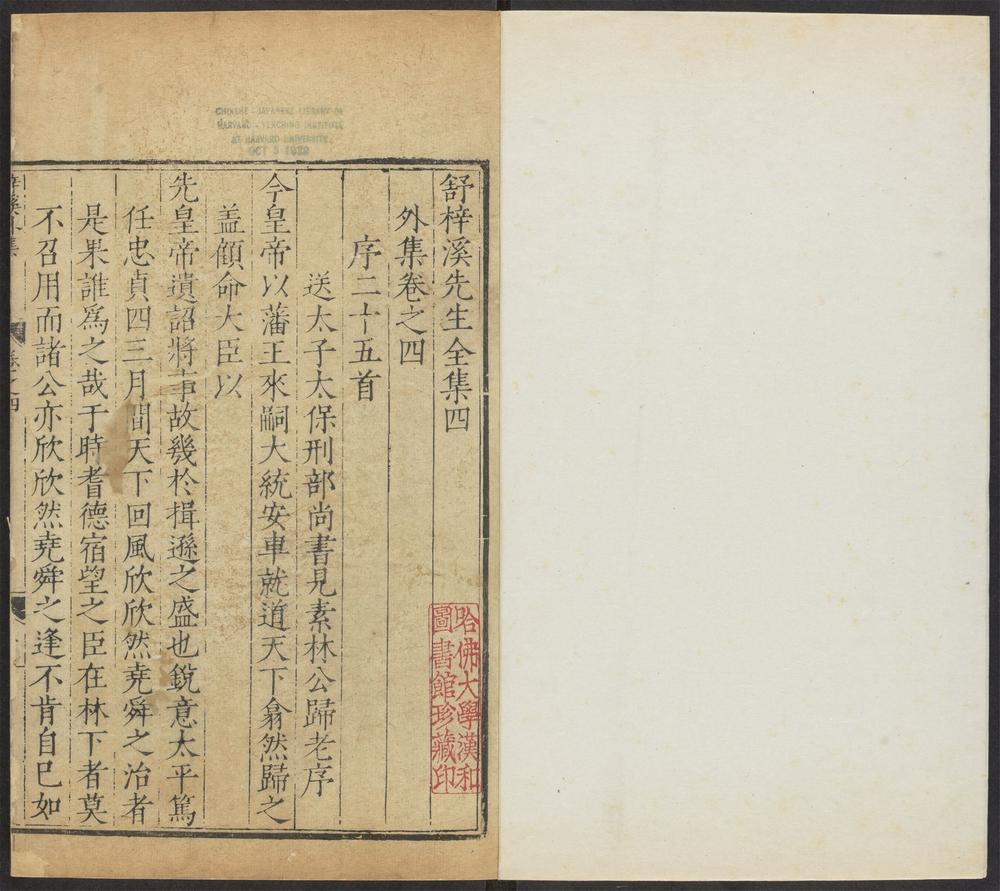 舒梓溪先生全集四
外集卷之四
序二十五首
送太子太保刑部尚書見素林公歸老序
今皇帝以藩王來嗣大統安車就道天下翕然歸之
盖顧命大臣以
先皇帝遺詔將事故幾於揖遜之盛也銳意太平篤
任忠貞四三月間天下回風欣欣然堯舜之治者
是果誰爲之哉于時耆德宿望之臣在林下者莫
不召用而諸公亦欣欣然堯舜之逢不肯自已如
梓溪外集
卷之四
哈佛大學漢和
圖書館珍藏印
CHINESE - JAPANESE LIBRARY OF
HARVARD - YENCHING INSTITUTE
AT HARVARD UNIVERSITY
OCT 3 1939